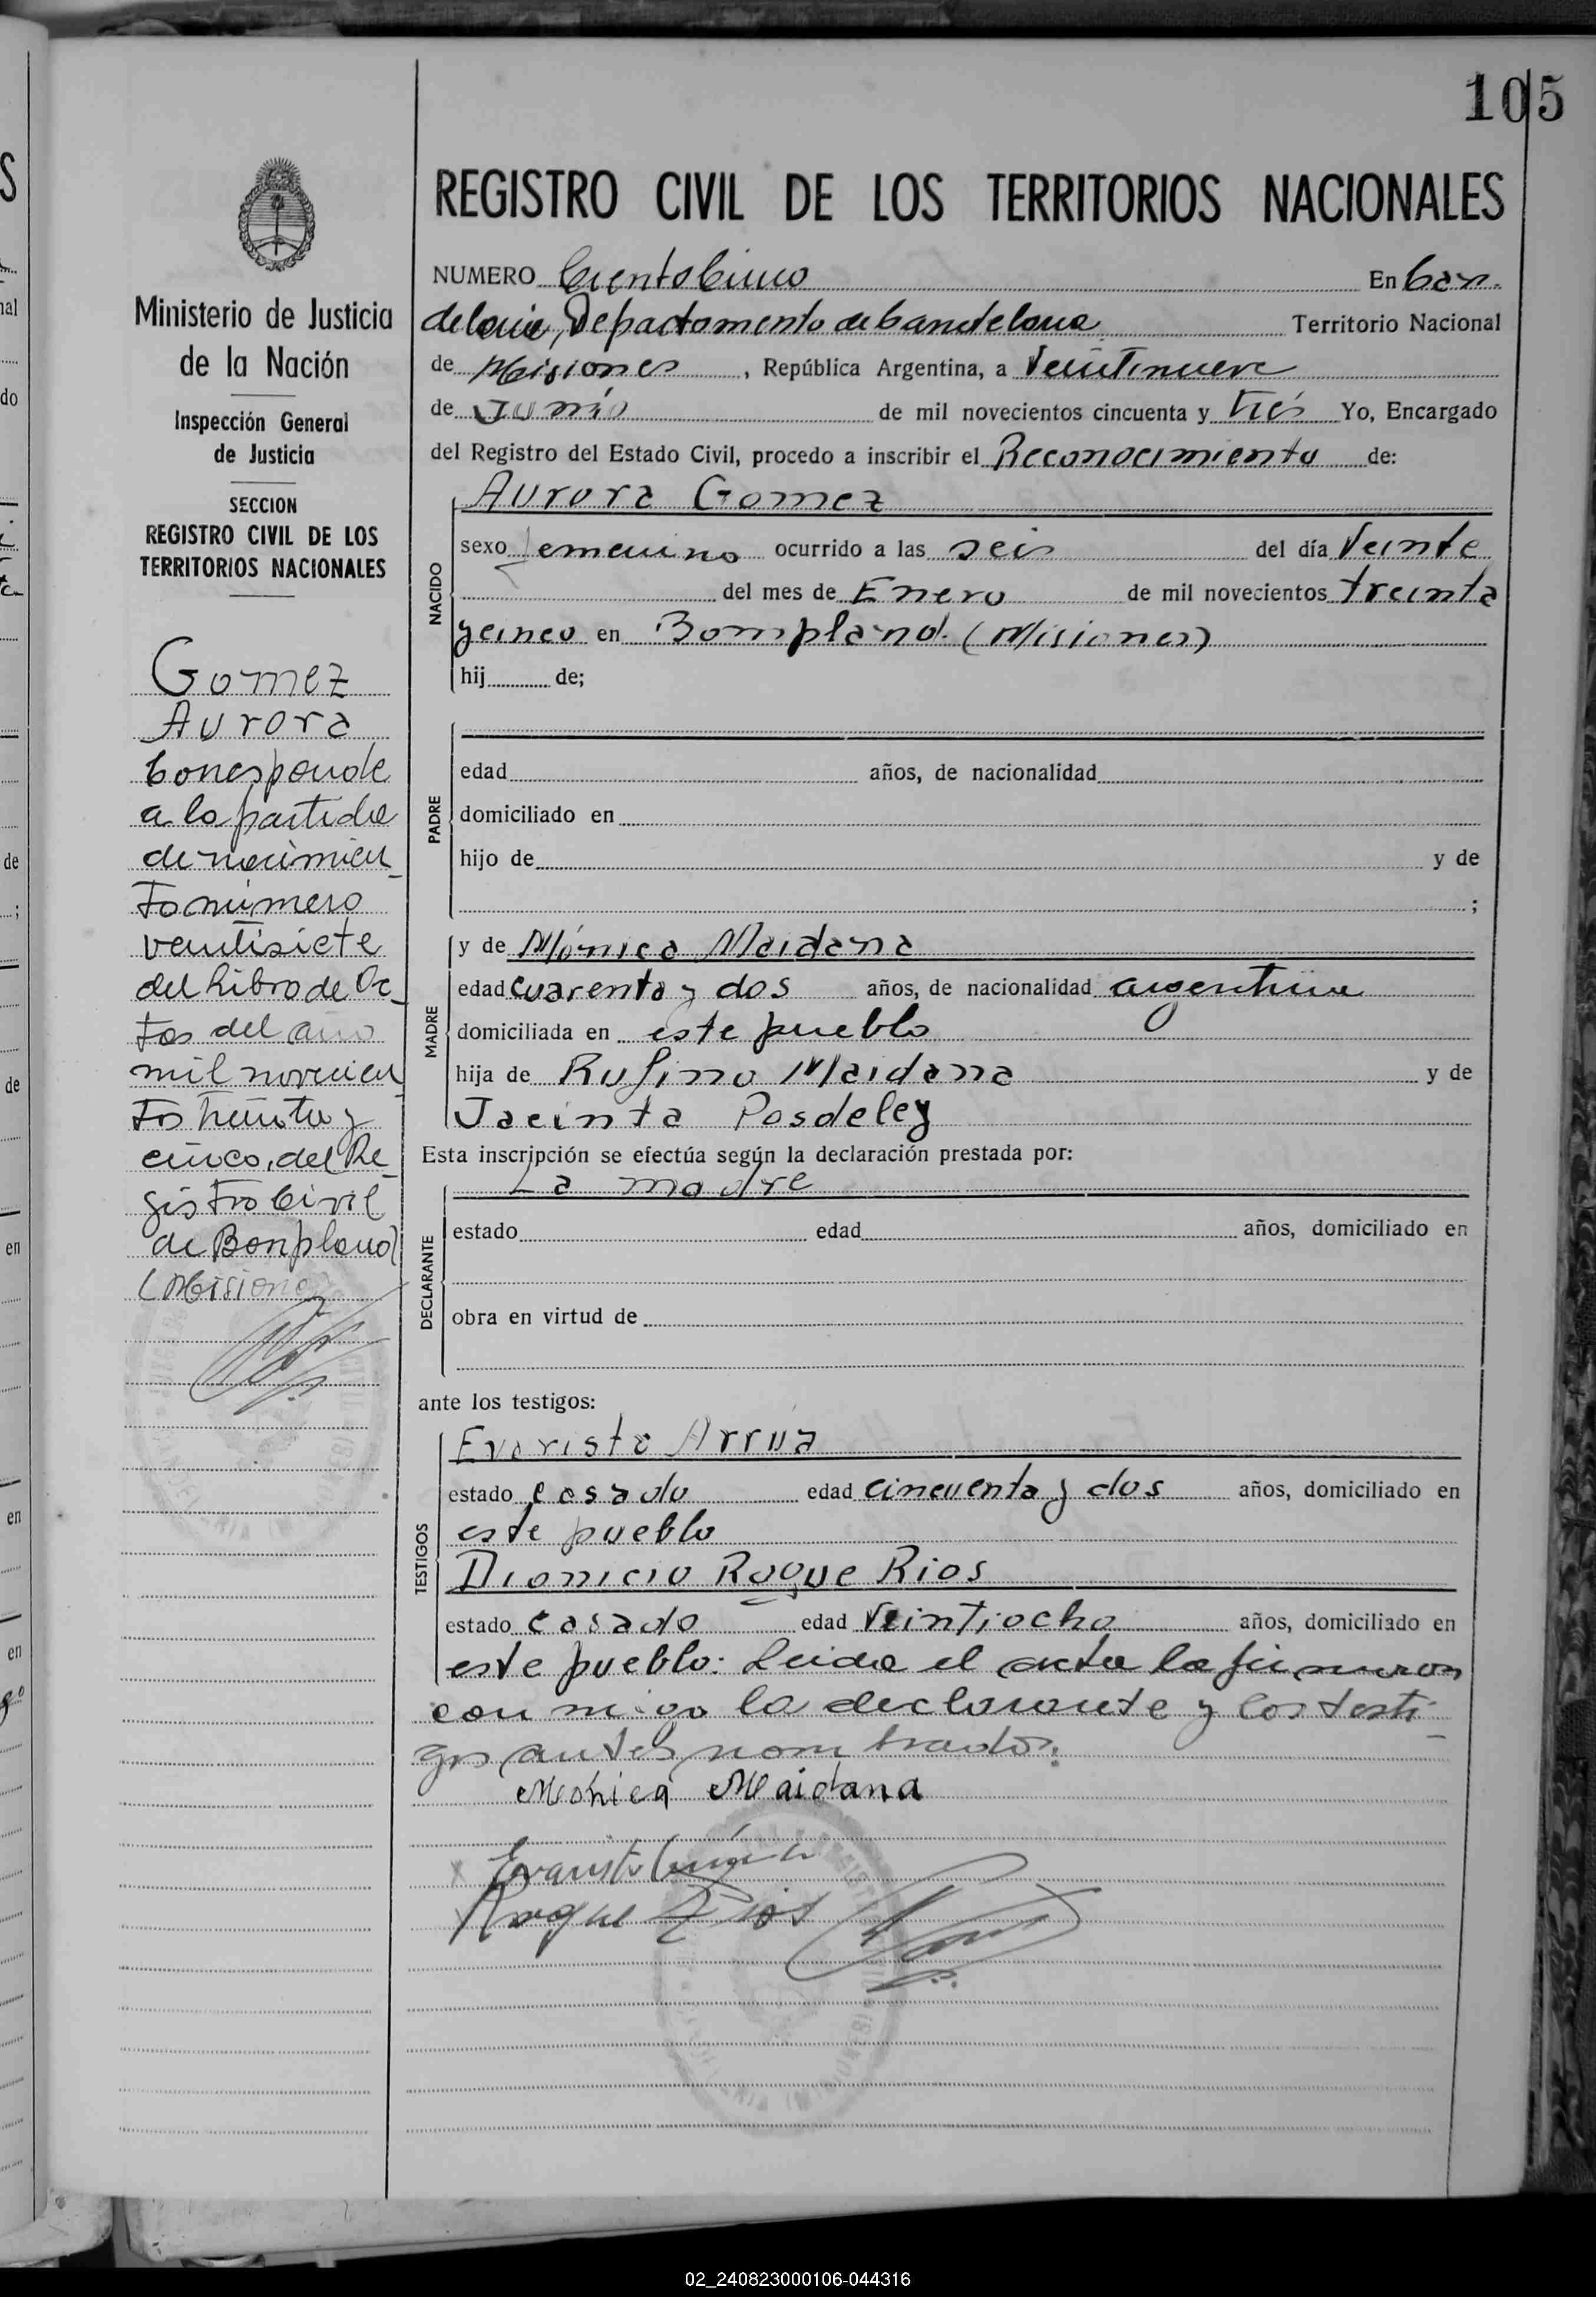 105
REGISTRO CIVIL DE LOS TERRITORIOS NACIONALES
NUMERO Ciento Cinco En Can-
delaria, Departamento de Candelaria Territorio Nacional
de Misiones, República Argentina, a Veintinueve
de Junio de mil novecientos cincuenta y tres Yo, Encargado
del Registro del Estado Civil, procedo a inscribir el Reconocimiento de:
Aurora Gomez
NACIDO
sexo femenino ocurrido a las seis del día Veinte
del mes de Enero de mil novecientos treinta
y cinco en Bompland. (Misiones)
hij de;
PADRE
edad años, de nacionalidad
domiciliado en
hijo de y de
;
MADRE
y de Mónica Maidana
edad cuarenta y dos años, de nacionalidad argentina
domiciliada en este pueblo
hija de Rufino Maidana y de
Jacinta Posdeley
Esta inscripción se efectúa según la declaración prestada por:
La madre
DECLARANTE
estado edad años, domiciliado en
obra en virtud de
ante los testigos:
TESTIGOS
Evaristo Arrua
estado casado edad cincuenta y dos años, domiciliado en
este pueblo
Dionicio Roque Rios
estado casado edad Veintiocho años, domiciliado en
este pueblo: Leida el acta la firmaron
con migo la declarante y los testi-
gos antes nombrados.
Monica Maidana
Evaristo
Roque Rios
Ministerio de Justicia
de la Nación
Inspección General
de Justicia
SECCION
REGISTRO CIVIL DE LOS
TERRITORIOS NACIONALES
Gomez
Aurora
Corresponde
a la partida
de nacimien-
to número
ventisiete
del Libro de Ac-
tas del año
mil novecien-
tos treinta y
cinco, del Re-
gistro Civil
de Bonpland
(Misiones
02_240823000106-044316